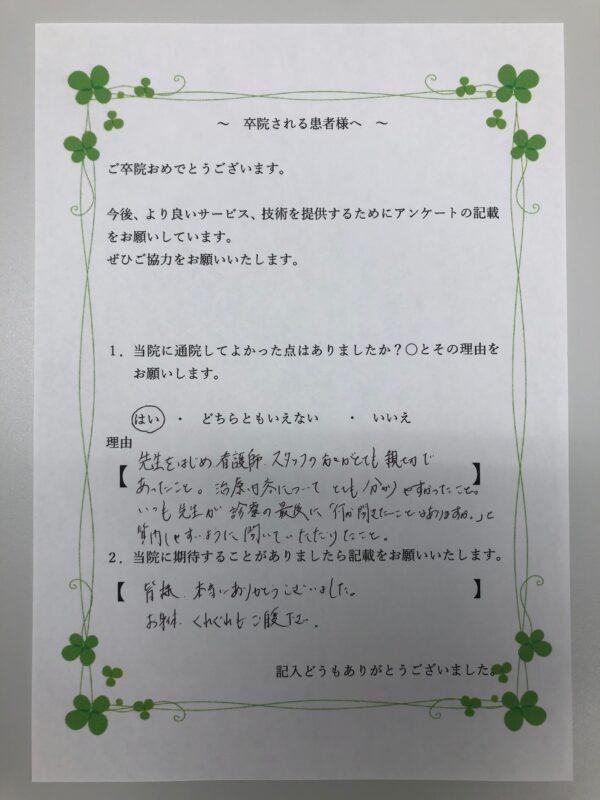 ～ 卒院される患者様へ ～
ご卒院おめでとうございます。
今後、より良いサービス、技術を提供するためにアンケートの記載
をお願いしています。
ぜひご協力をお願いいたします。
１．当院に通院してよかった点はありましたか？〇とその理由を
お願いします。
はい ・ どちらともいえない ・ いいえ
理由
【 先生をはじめ看護師、スタッフの方々がとても親切で 】
あったこと。治療内容について とても分かりやすかったこと。
いつも先生が診察の最後に「何か聞きたいことはありますか。」と
質問しやすいように聞いていただいたこと。
２．当院に期待することがありましたら記載をお願いいたします。
【 皆様、本当にありがとうございました。 】
お身体、くれぐれもご自愛下さい。
記入どうもありがとうございました。